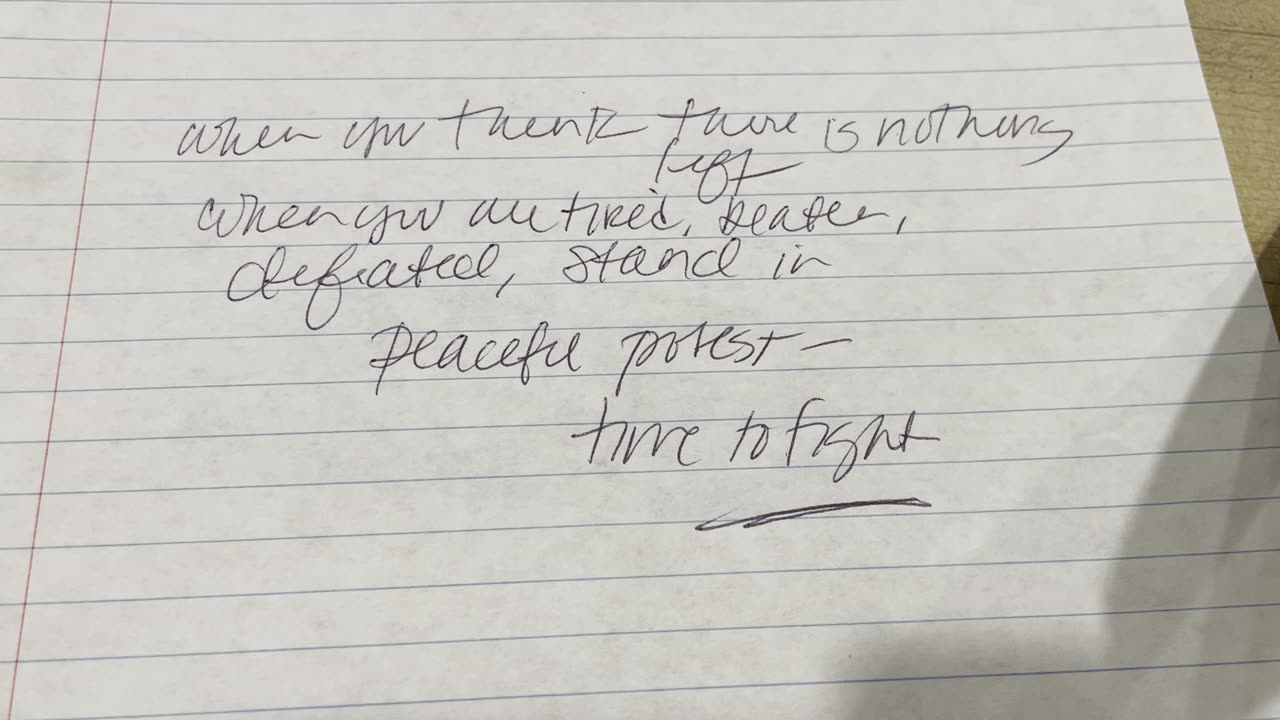 when you think there is nothing
left
when you are tired, beaten,
defeated, stand in
peaceful protest –
time to fight